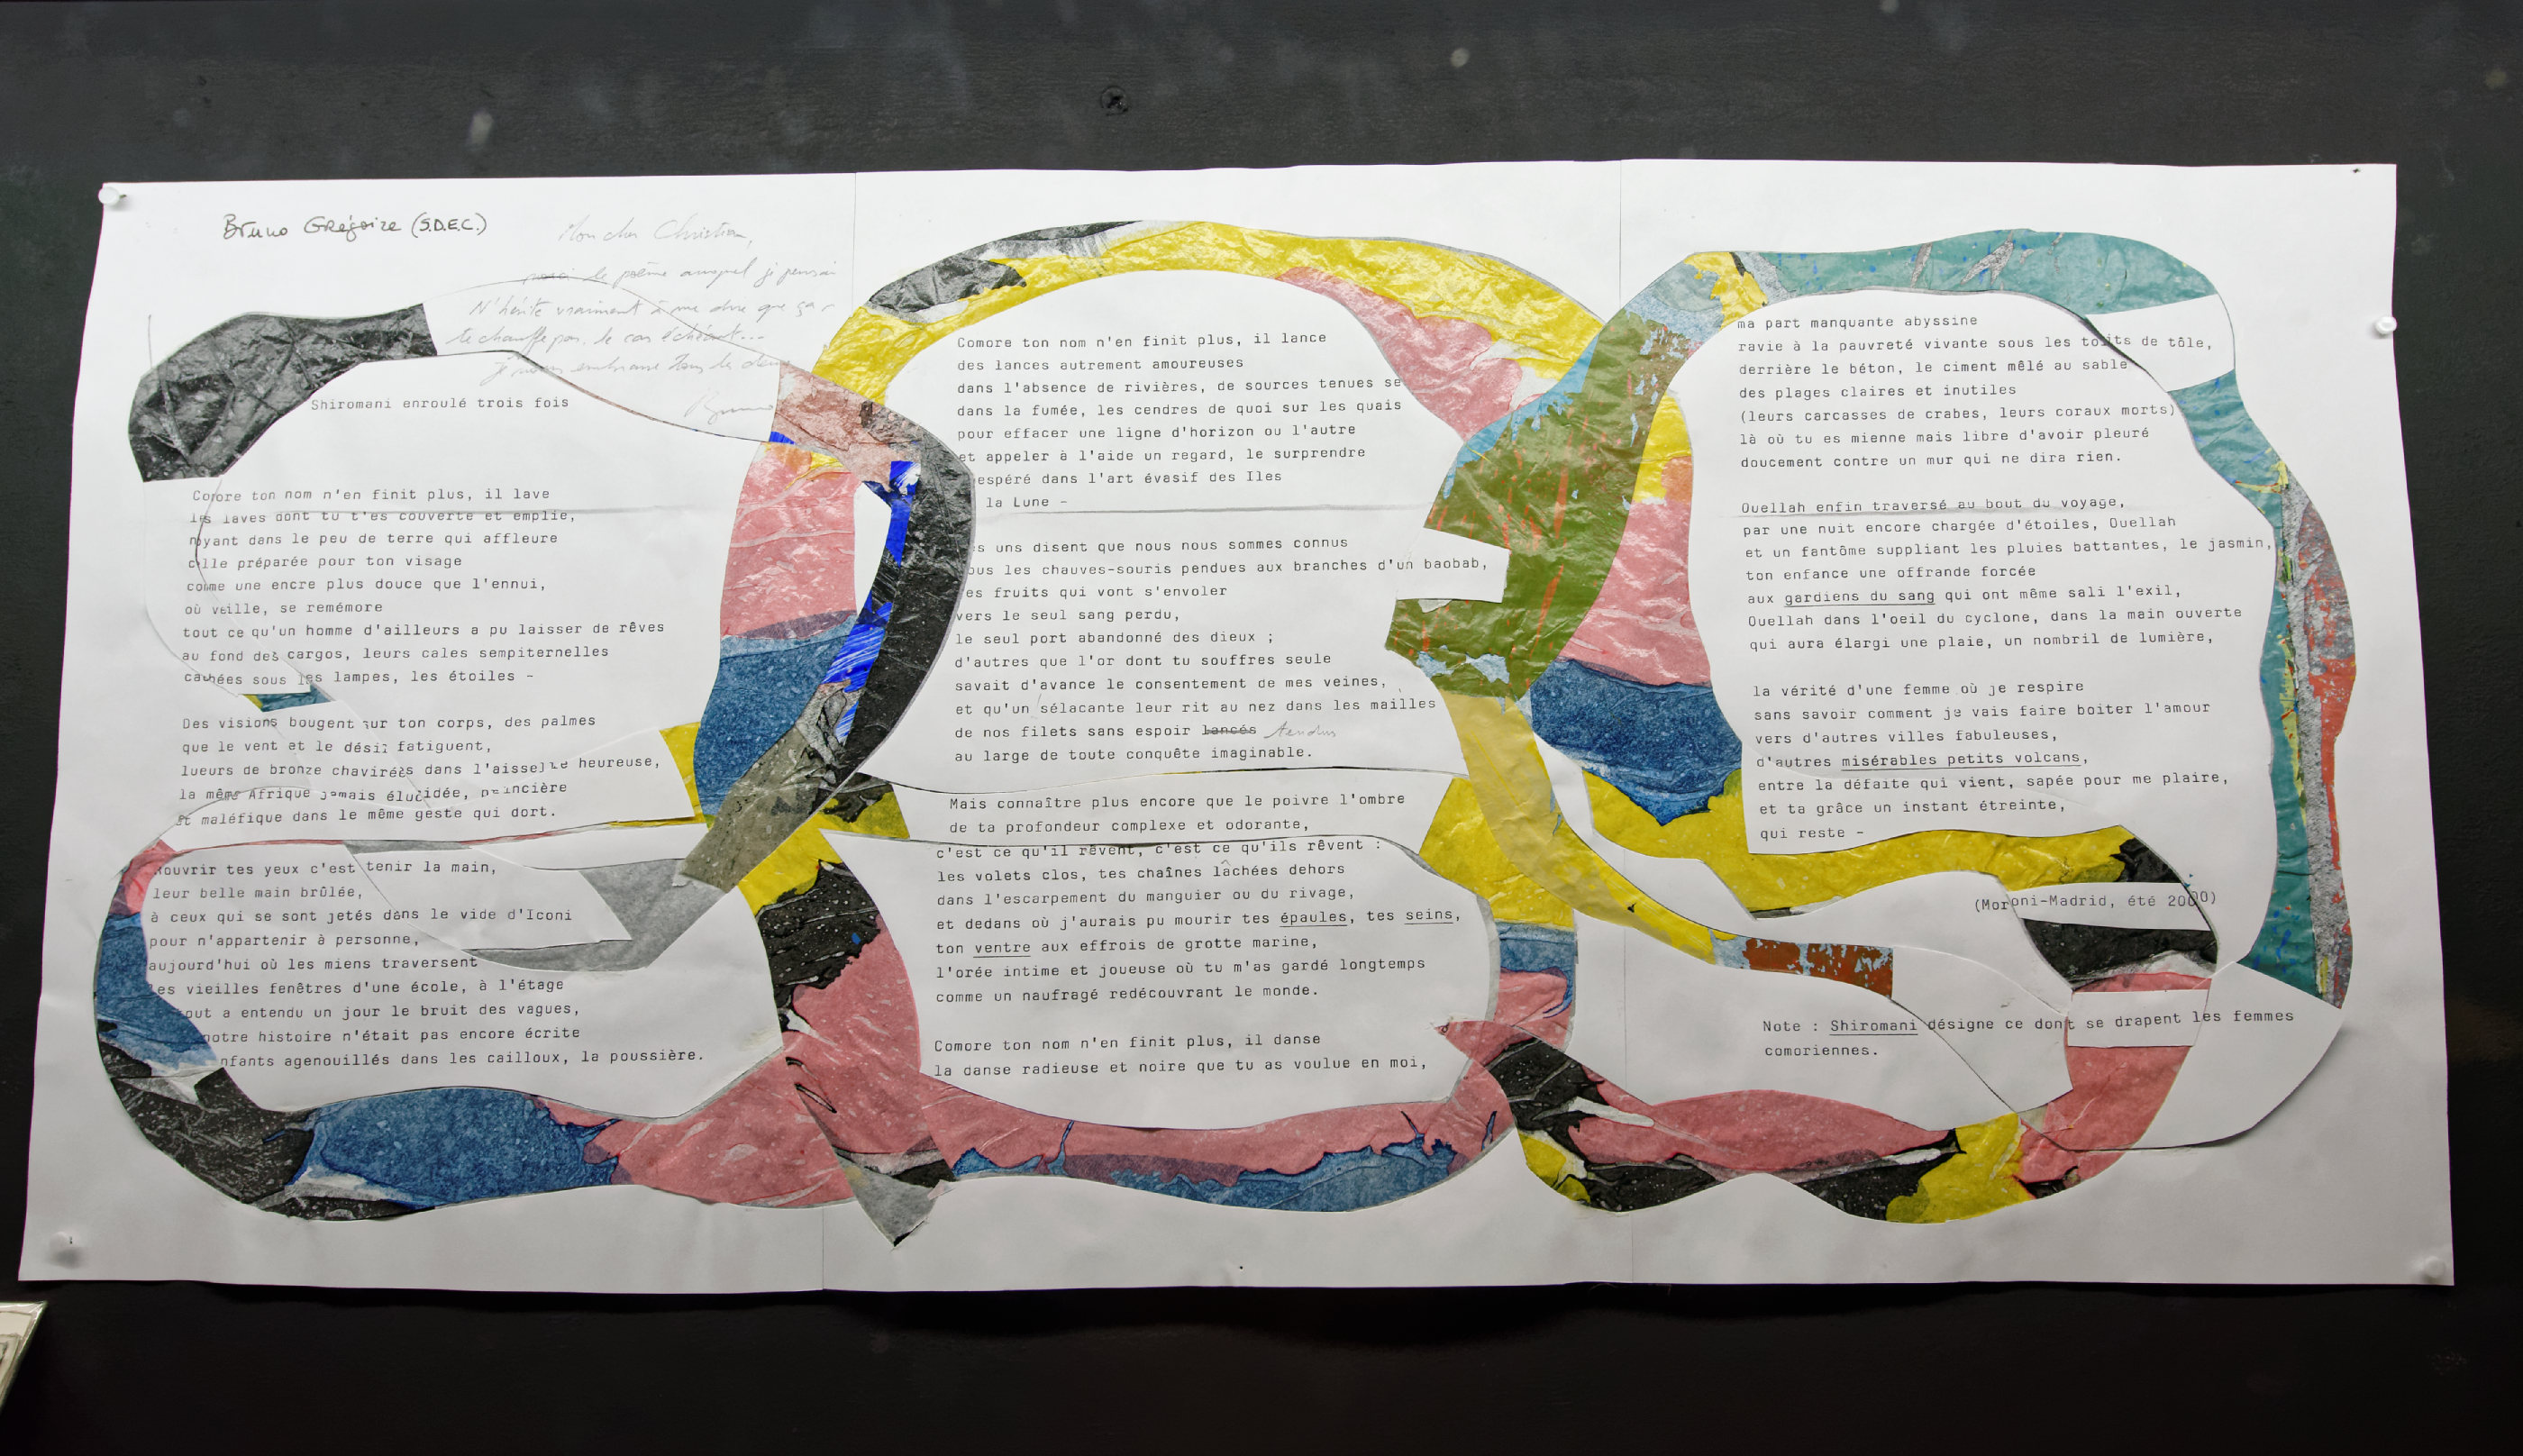 Bruno Grégoire (S.D.E.C.)
Mon cher Christian,
le poème auquel je pensais
N'hésite vraiment à me dire que ça
te chauffe pas, le cas échéant...
Bruno
Shiromani enroulé trois fois
Comore ton nom n'en finit plus, il lave
les laves dont tu t'es couverte et emplie,
noyant dans le peu de terre qui affleure
celle préparée pour ton visage
comme une encre plus douce que l'ennui,
où veille, se remémore
tout ce qu'un homme d'ailleurs a pu laisser de rêves
au fond des cargos, leurs cales sempiternelles
cachées sous les lampes, les étoiles -
Des visions bougent sur ton corps, des palmes
que le vent et le désir fatiguent,
lueurs de bronze chavirées dans l'aisselle heureuse,
la même Afrique jamais élucidée, princière
et maléfique dans le même geste qui dort.
Rouvrir tes yeux c'est tenir la main,
leur belle main brûlée,
à ceux qui se sont jetés dans le vide d'Iconi
pour n'appartenir à personne,
aujourd'hui où les miens traversent
les vieilles fenêtres d'une école, à l'étage
tout a entendu un jour le bruit des vagues,
notre histoire n'était pas encore écrite
nfants agenouillés dans les cailloux, la poussière.
Comore ton nom n'en finit plus, il lance
des lances autrement amoureuses
dans l'absence de rivières, de sources tenues se
dans la fumée, les cendres de quoi sur les quais
pour effacer une ligne d'horizon ou l'autre
et appeler à l'aide un regard, le surprendre
espéré dans l'art évasif des Iles
la Lune -
s uns disent que nous nous sommes connus
ous les chauves-souris pendues aux branches d'un baobab,
es fruits qui vont s'envoler
vers le seul sang perdu,
le seul port abandonné des dieux ;
d'autres que l'or dont tu souffres seule
savait d'avance le consentement de mes veines,
et qu'un sélacante leur rit au nez dans les mailles
de nos filets sans espoir lancés tendus
au large de toute conquête imaginable.
Mais connaître plus encore que le poivre l'ombre
de ta profondeur complexe et odorante,
c'est ce qu'il rêvent, c'est ce qu'ils rêvent :
les volets clos, tes chaînes lâchées dehors
dans l'escarpement du manguier ou du rivage,
et dedans où j'aurais pu mourir tes épaules, tes seins,
ton ventre aux effrois de grotte marine,
l'orée intime et joueuse où tu m'as gardé longtemps
comme un naufragé redécouvrant le monde.
Comore ton nom n'en finit plus, il danse
la danse radieuse et noire que tu as voulue en moi,
ma part manquante abyssine
ravie à la pauvreté vivante sous les toits de tôle,
derrière le béton, le ciment mêlé au sable
des plages claires et inutiles
(leurs carcasses de crabes, leurs coraux morts)
là où tu es mienne mais libre d'avoir pleuré
doucement contre un mur qui ne dira rien.
Ouellah enfin traversé au bout du voyage,
par une nuit encore chargée d'étoiles, Ouellah
et un fantôme suppliant les pluies battantes, le jasmin,
ton enfance une offrande forcée
aux gardiens du sang qui ont même sali l'exil,
Ouellah dans l'oeil du cyclone, dans la main ouverte
qui aura élargi une plaie, un nombril de lumière,
la vérité d'une femme où je respire
sans savoir comment je vais faire boiter l'amour
vers d'autres villes fabuleuses,
d'autres misérables petits volcans,
entre la défaite qui vient, sapée pour me plaire,
et ta grâce un instant étreinte,
qui reste -
(Moroni-Madrid, été 2000)
Note : Shiromani désigne ce dont se drapent les femmes
comoriennes.